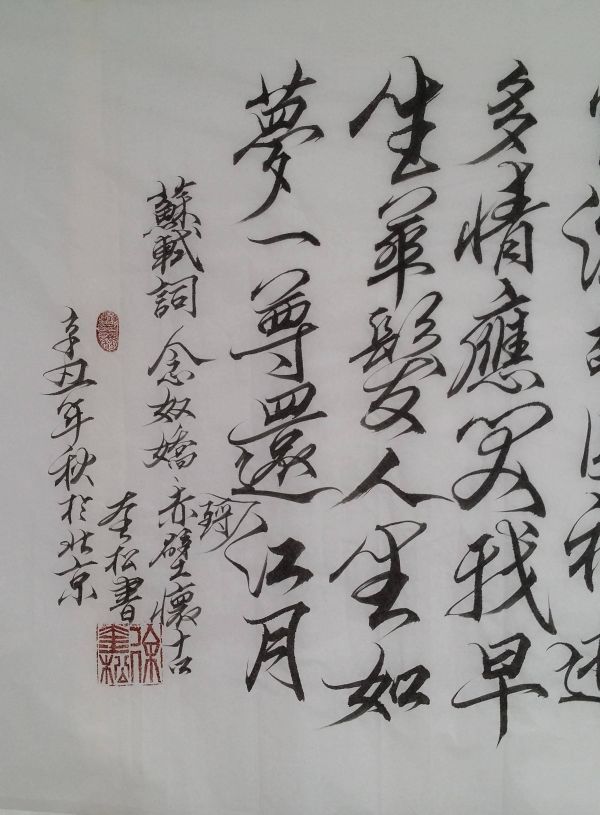 多情應笑我早
生華髮人生如
夢一尊還酹江月
蘇軾詞 念奴嬌·赤壁懷古
奎松書
辛丑年秋於北京
徐奎松